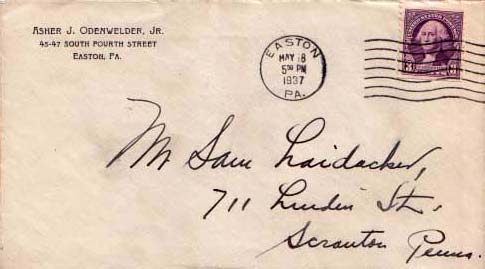 ASHER J. ODENWELDER, JR.
45-47 SOUTH FOURTH STREET
EASTON, PA.
EASTON
MAY 18
5:00 PM
1937
PA.
3 3
Mr Sam Laidacker,
711 Linden St.,
Scranton Penna.